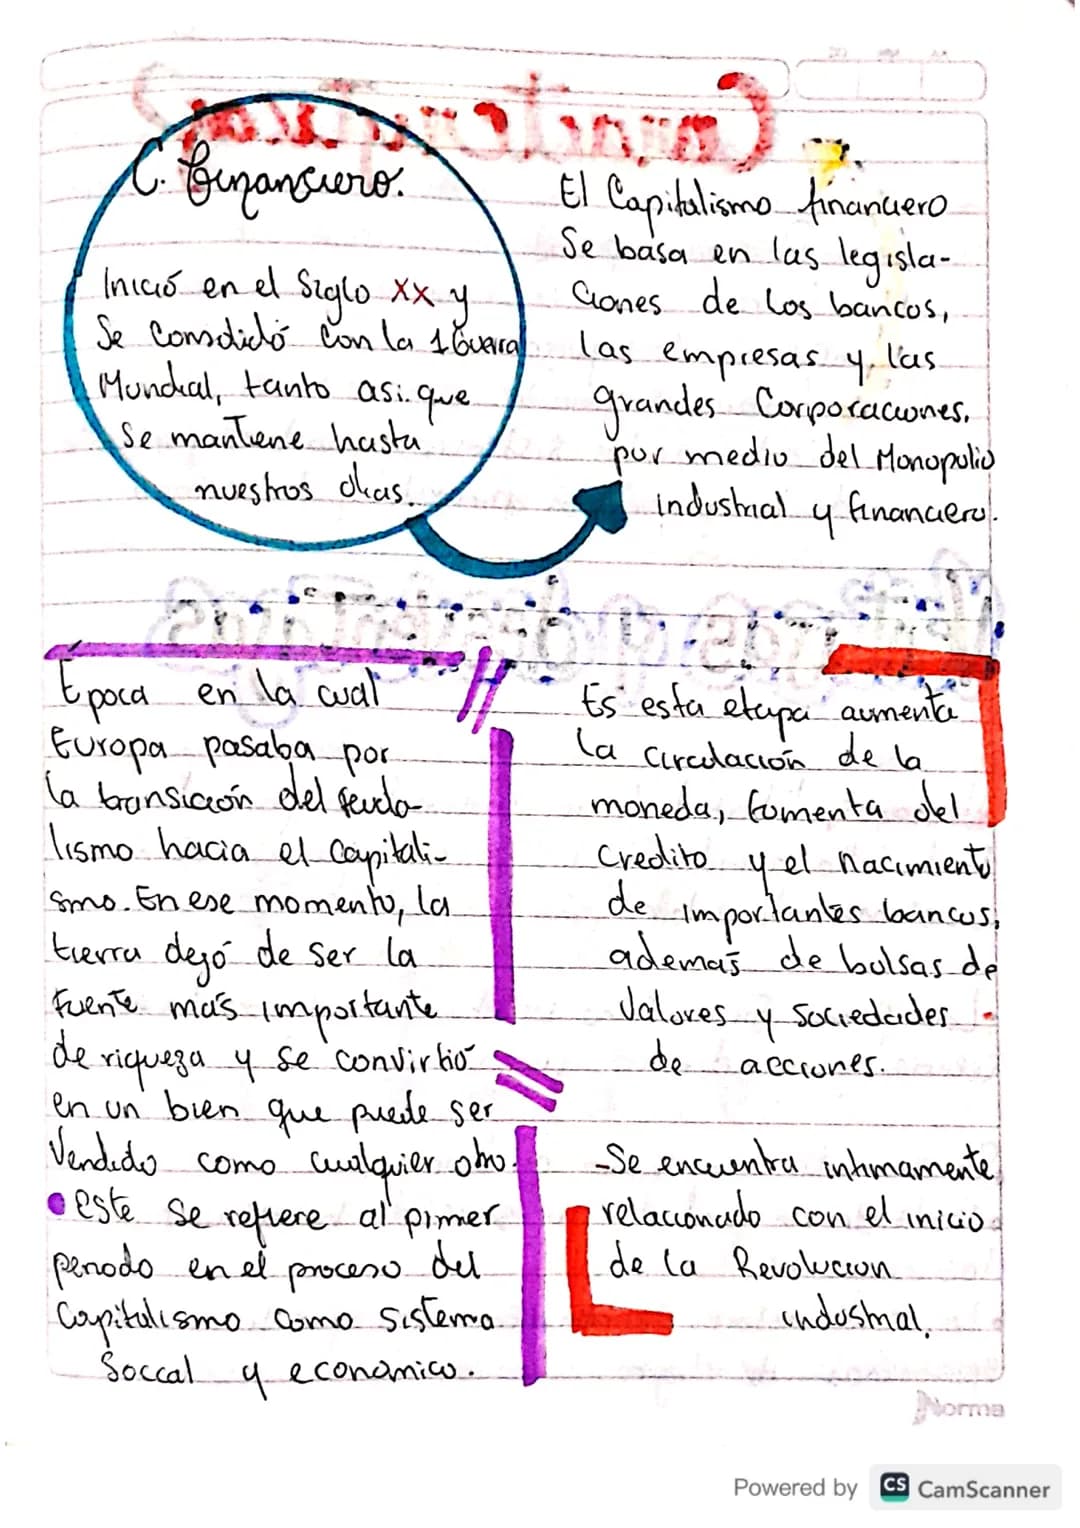 C. Financiero.
Inició en el Siglo XX y
Se Consolidó Con la 1 Guerra
Mundial, tanto asi que
Se mantiene hasta
nuestros dias.
El Capitalismo financiero
Se basa en las legisla-
ciones de los bancos,
las empresas y las
grandes Corporaciones.
por medio del Monopolio
industrial y financiero.
Epoca en la cual
Europa pasaba por
la transición del feuda-
lismo hacia el Capitali-
smo. En ese momento, la
tierra dejó de ser la
fuente más importante
de riqueza y se convirtió
en un bien que puede ser
Vendido como cualquier otro.
• este se refiere al primer
periodo en el proceso del
Capitalismo como sistema
Soccal y económico.
Es esta etapa aumenta
la circulación de la
moneda, fomenta del
Credito y el nacimiento
de importantes bancos,
además de bolsas de
Valores y Sociedades
de acciones.
-Se encuentra intimamente
relacionado con el inicio
de la Revolucion
industrial.
Norma
Powered by CS CamScanner